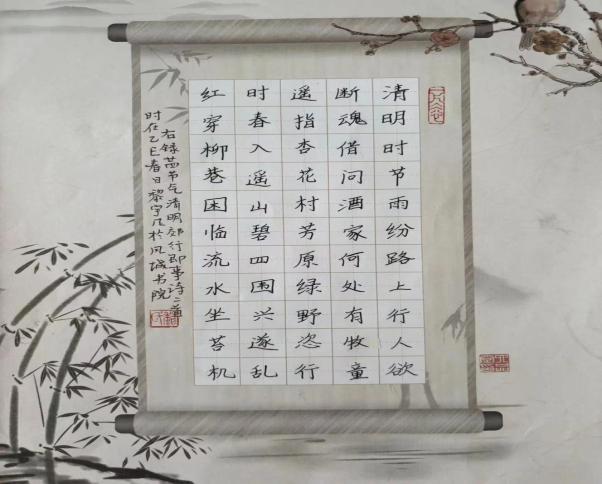 清明时节雨纷路上行人欲
断魂借问酒家何处有牧童
遥指杏花村芳原绿野恣行
时春入遥山碧四围兴遂乱
红穿柳巷困临流水坐苔机
右録节气清明郊行即事诗二首
时在乙巳春日黎宇凡於凤城书院